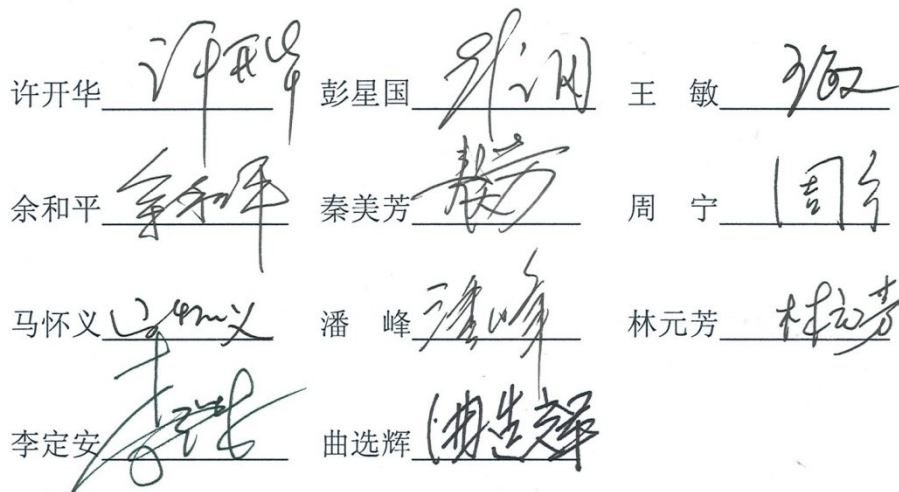 许开华 许开华 彭星国 彭星国 王 敏 王敏
余和平 余和平 秦美芳 秦美芳 周 宁 周宁
马怀义 马怀义 潘 峰 潘峰 林元芳 林元芳
李定安 李定安 曲选辉 曲选辉